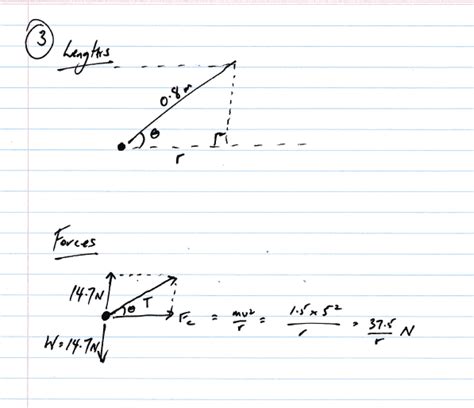 3
Lengths
0.8m
θ
r
Forces
14.7N
θ T
Fc = mv²/r = 1.5 x 5²/r = 37.5/r N
W = 14.7N